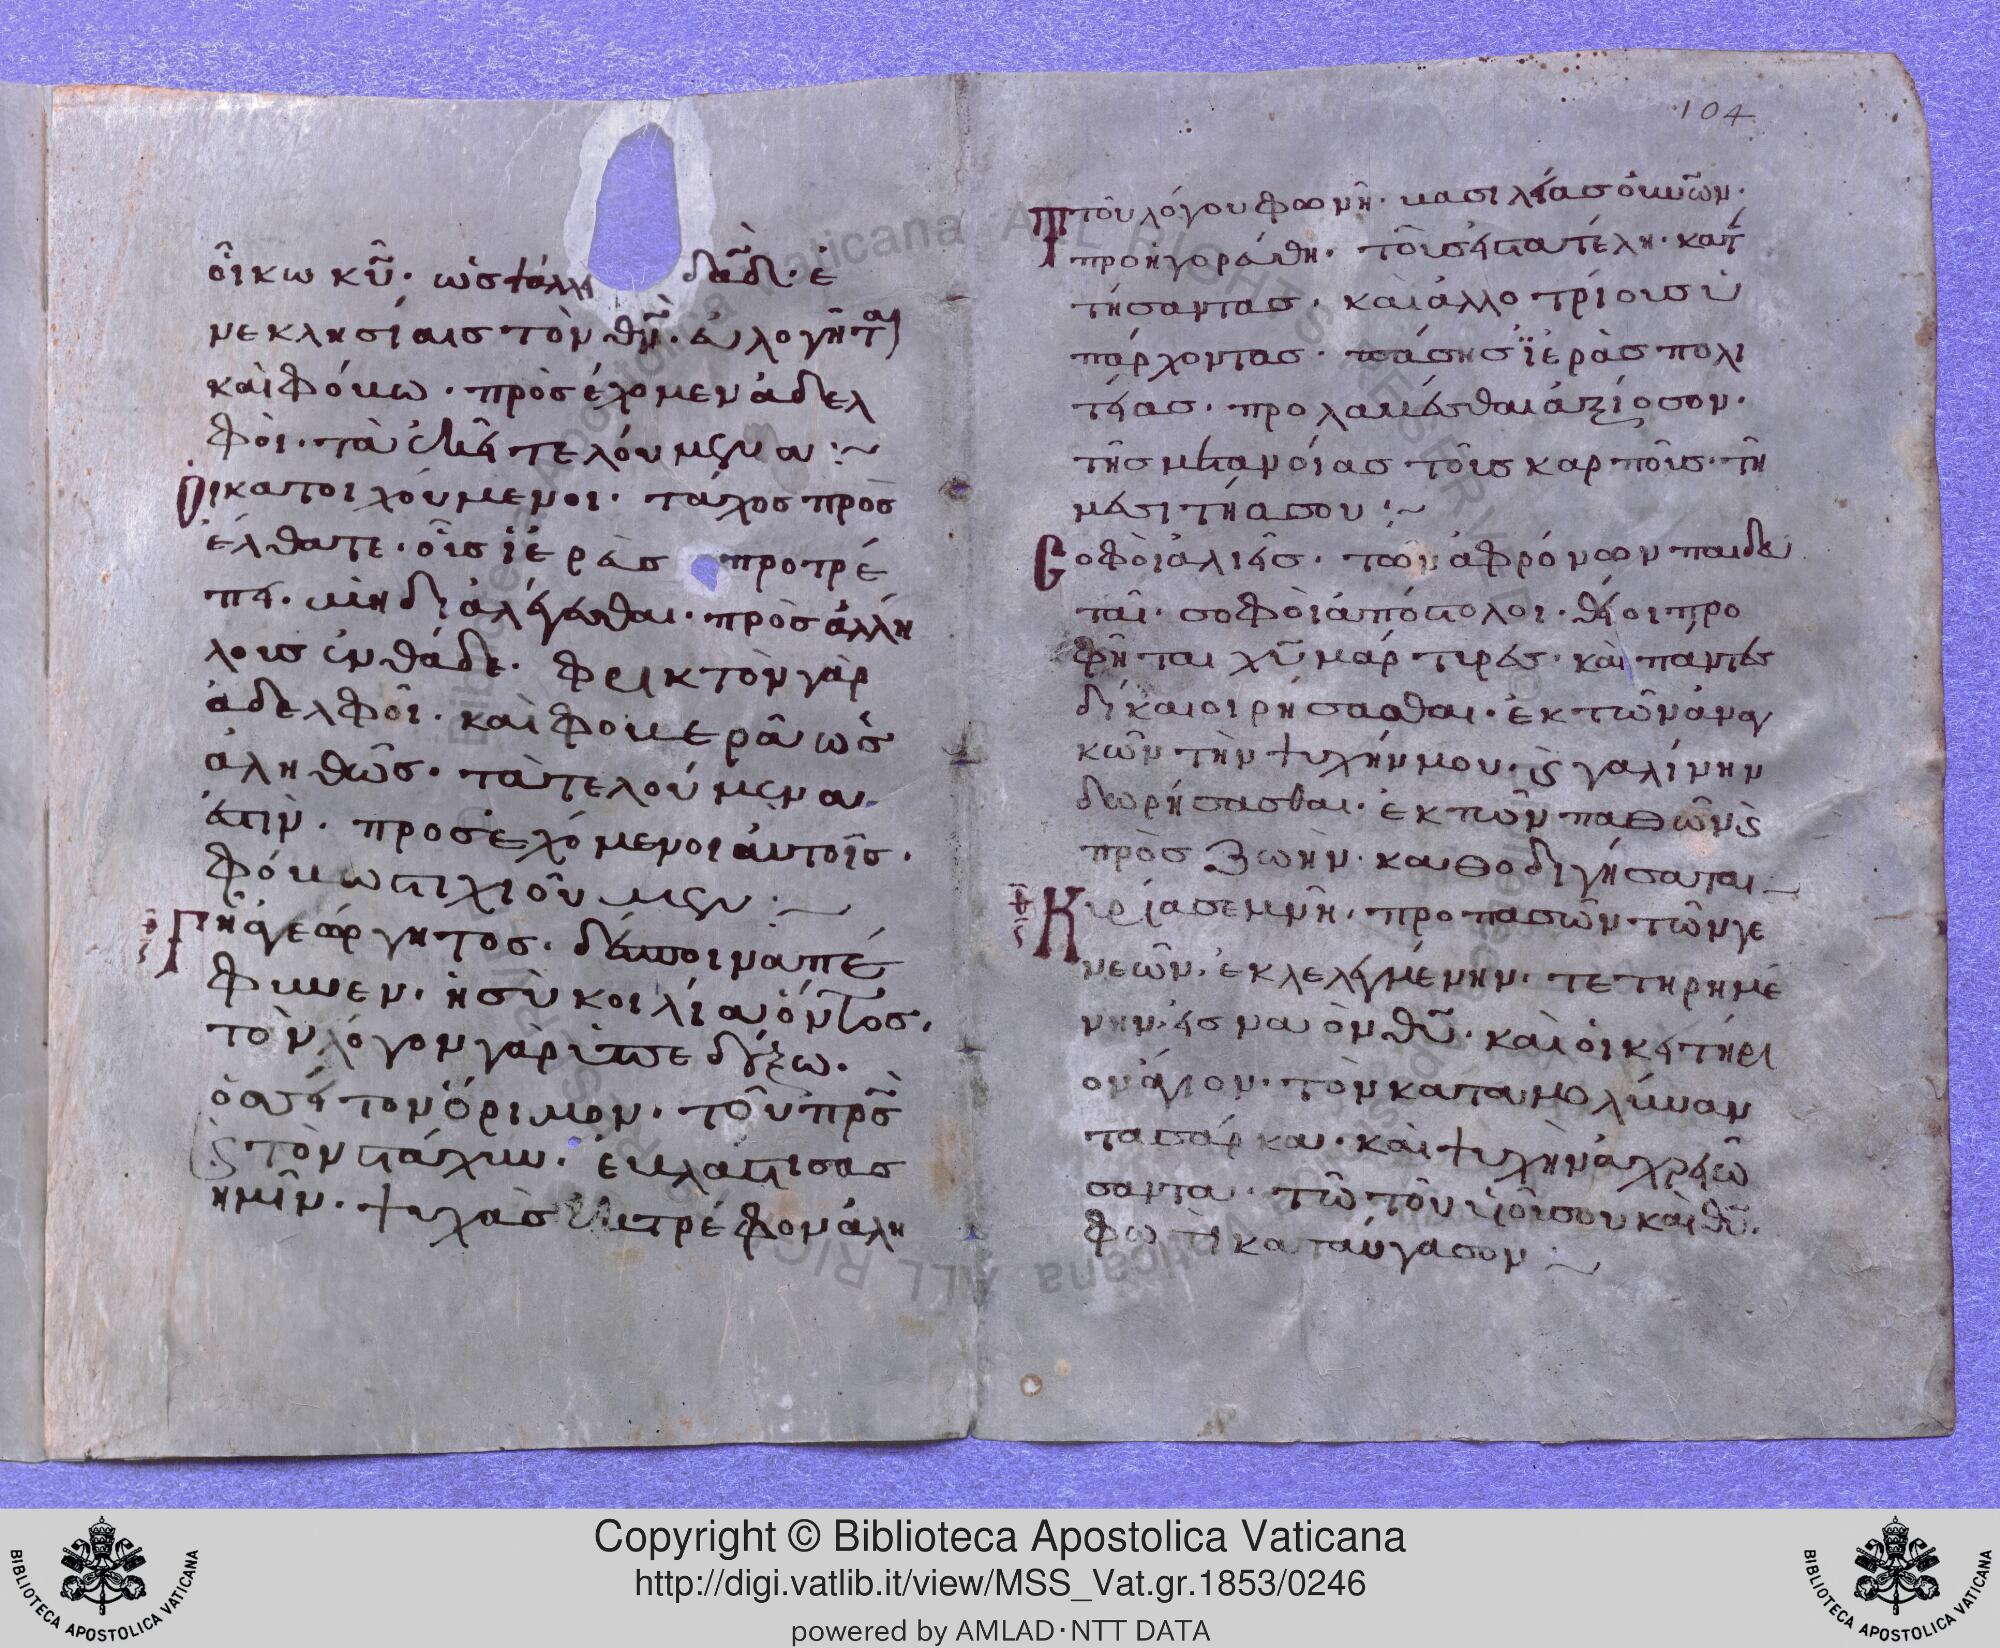 οἴκω κῦ· ὡς ψάλλι δᾶδ· ἐ
νεκλησίαις τὸν θν· ἐυλογῆται
καὶ φόβω· πρὸσέχομεν ἀδελ
φὸι· τὰ ἐκεῖ τελόυμενα :~
Οι κατοιχόυμενοι· τάχος πρὸσ
έλθατε· οἷς ἱερεὺς προτρέ
πει· μὴ διαλέγεσθαι· πρὸς ἀλλή
λους ἐνθάδε· φρικτὸν γὰρ
ἀδελφοὶ· καὶ φοβερὰ ὡς
ἀληθῶς· τὰ τελούμενα
ἐστὶν· προσεχόμενοι ἀυτοῖς·
φόβω στιχιοῦμεν :~
Γῆ ἀγεώργητος· δέσποινα πέ
φυκεν· ἡ σὺ κοιλία ὄντος·
τὸν λόγον γὰρ ὑπεδέξω·
ὁσεί τον ὅριμον· τοῦ πρς
ϛ τὸν στάχυν· ἐβλάστισας
ἡμῖν· ψυχὰς ἐκτρέφον ἀλη
104
Τ τοῦ λόγου φωνῆ· βασιλείας ὁ βοῶν·
προηγορεύθη· τοῖς ἐπατέλη· κατ
τήσαντας· καὶ ἀλλοτρίους ὑ
πάρχοντας· πάσης ἱερὰς πολι
τείας· προλαβέσθαι ἀξίοσον·
τῆς μετανοίας τοῖς καρποῖς· τῆ
μεσιτεία σου :~
Σοφὸι ἁλιεῖς· τῶν ἀφρόνων παιδευ
ταὶ· σοφὸι ἀπόστολοι· θείοι προ
φῆται χῦ μάρτιρες· καὶ πάντες
δίκαιοι ρήσασθαι· ἐκ τῶν ἀναγ
κῶν τὴν ψυχήν μου· ϛ γαλίνην
δωρήσασθαι· ἐκ τῶν παθῶν ϛ
πρὸς ζωὴν· καθοδιγήσαται :~
Κυρία σεμνῆ· προ πασῶν τῶν γε
νεῶν· ἐκλελεγμένην· τετηρημέ
νην· εἰς ναὸν θῦ· καὶ οἰκειτήρι
ον ἅγιον· τὸν καταμολύναν
τα σάρκα· καὶ ψυχὴν ἀχρειώ
σαντα· τῶ τοῦ υἱοῦ σου καὶ θῦ·
φωτὶ καταύγασον :~
Copyright © Biblioteca Apostolica Vaticana
http://digi.vatlib.it/view/MSS_Vat.gr.1853/0246
powered by AMLAD·NTT DATA
BIBLIOTECA APOSTOLICA VATICANA
BIBLIOTECA APOSTOLICA VATICANA